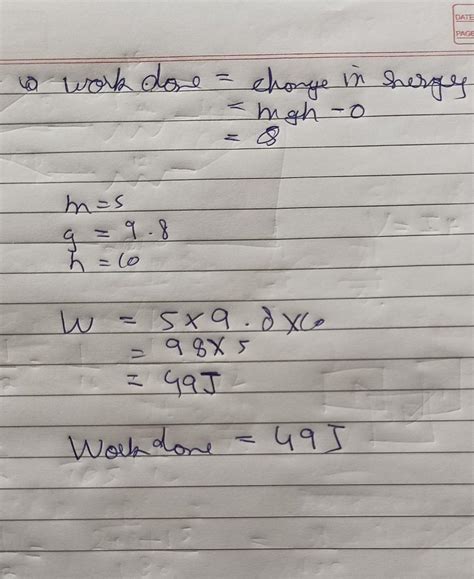 DATE
PAGE
Work done = change in energy
= mgh - 0
= 8
m = 5
g = 9.8
h = 10
W = 5 x 9.8 x 10
= 98 x 5
= 49J
Work done = 49J